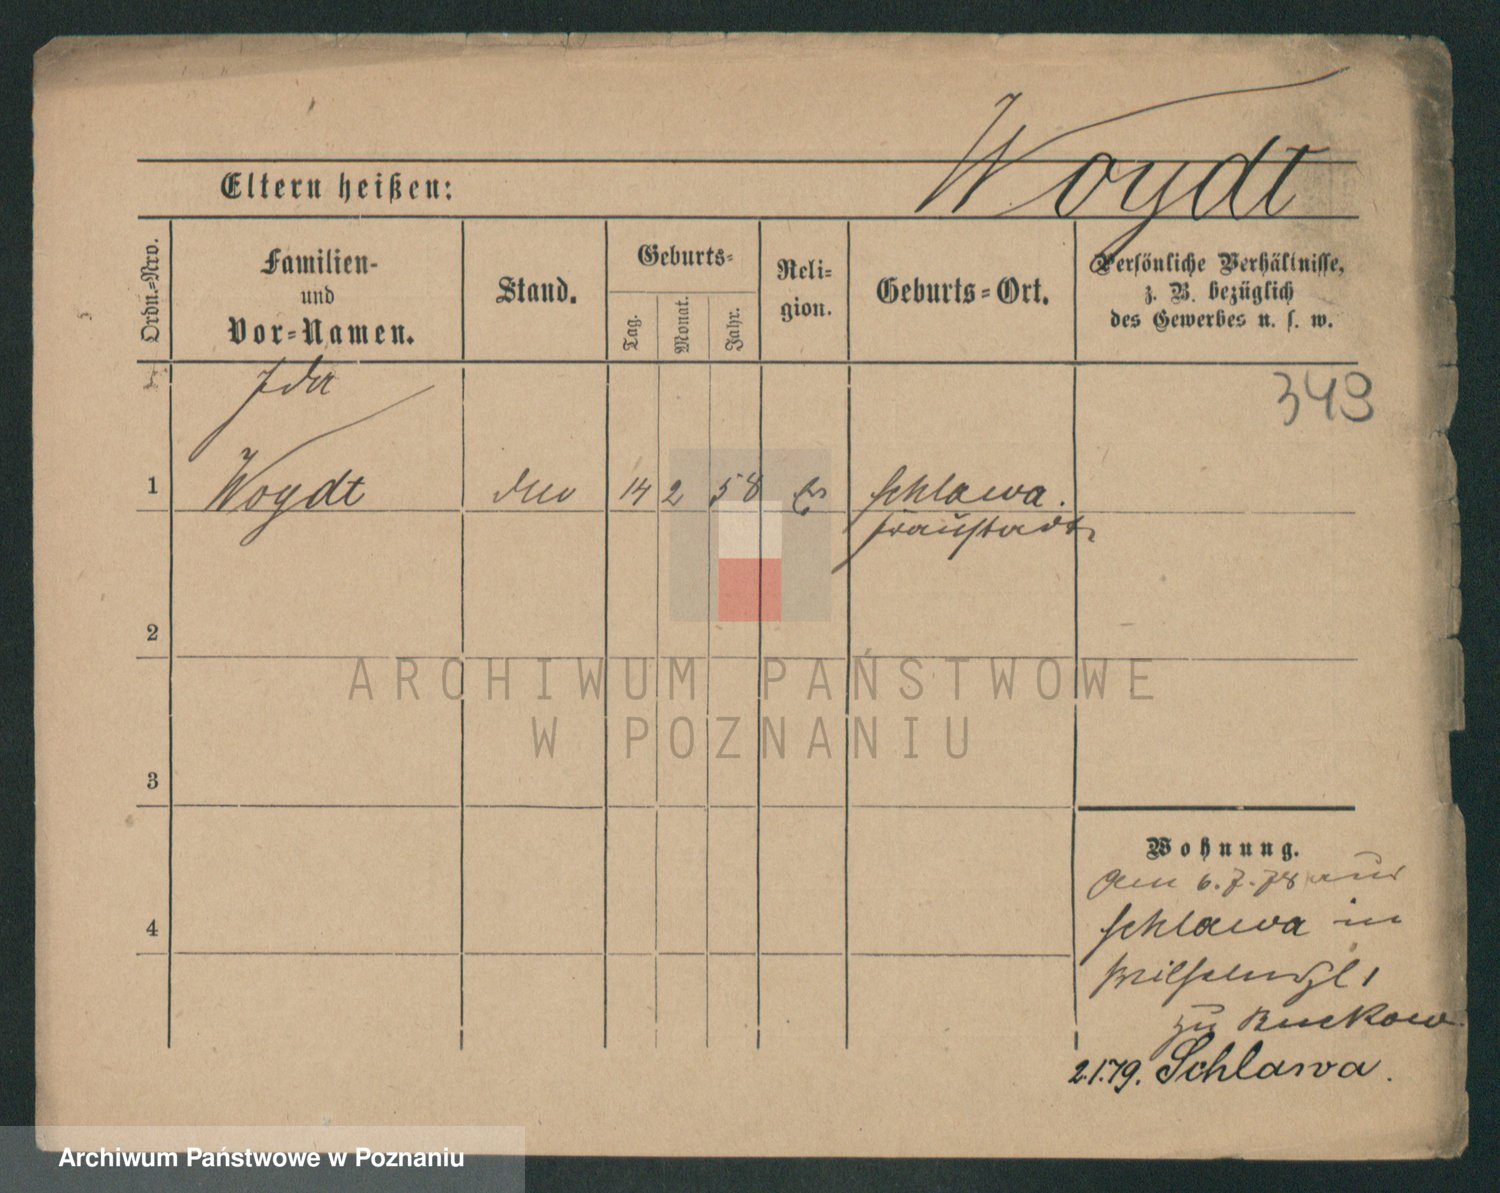 Woydt
Eltern heißen:
Ordn.=Nro.
Familien-
und
Vor=Namen.
Stand.
Geburts=
Tag.
Monat.
Jahr.
Reli=
gion.
Geburts=Ort.
Persönliche Verhältnisse,
z. B. bezüglich
des Gewerbes u. s. w.
343
Ida
1 Woydt 14 2 58 Schlawa.
Fraustadt
2
3
4
Wohnung.
Am 6.7.78 aus
Schlawa in
zu Buckow
2.1.79. Schlawa.
ARCHIWUM PAŃSTWOWE
W POZNANIU
Archiwum Państwowe w Poznaniu